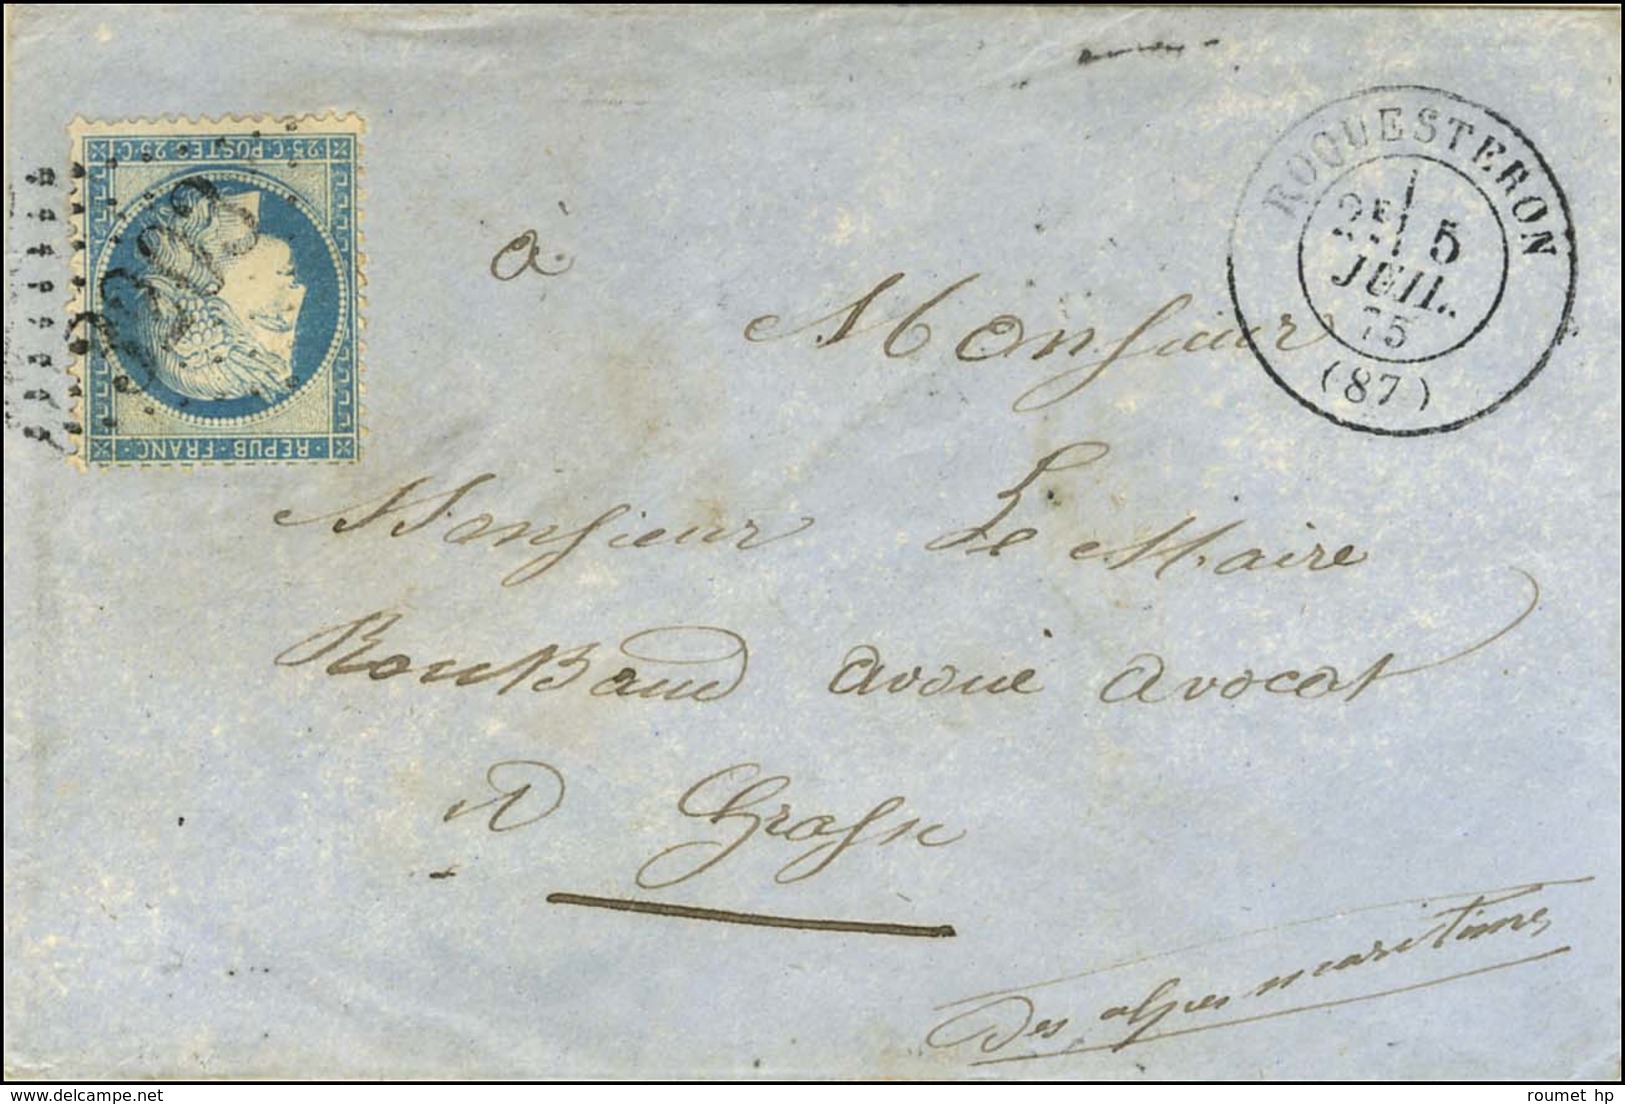 25·C·POSTES 25·C
REPUB·FRANC·
ROQUESTERON
2E
5
JUIL.
75
(87)
à
Monsieur
Monsieur Le Maire
Roubaud avoué avocat
A Grasse
Des alpes maritimes
roumet hp